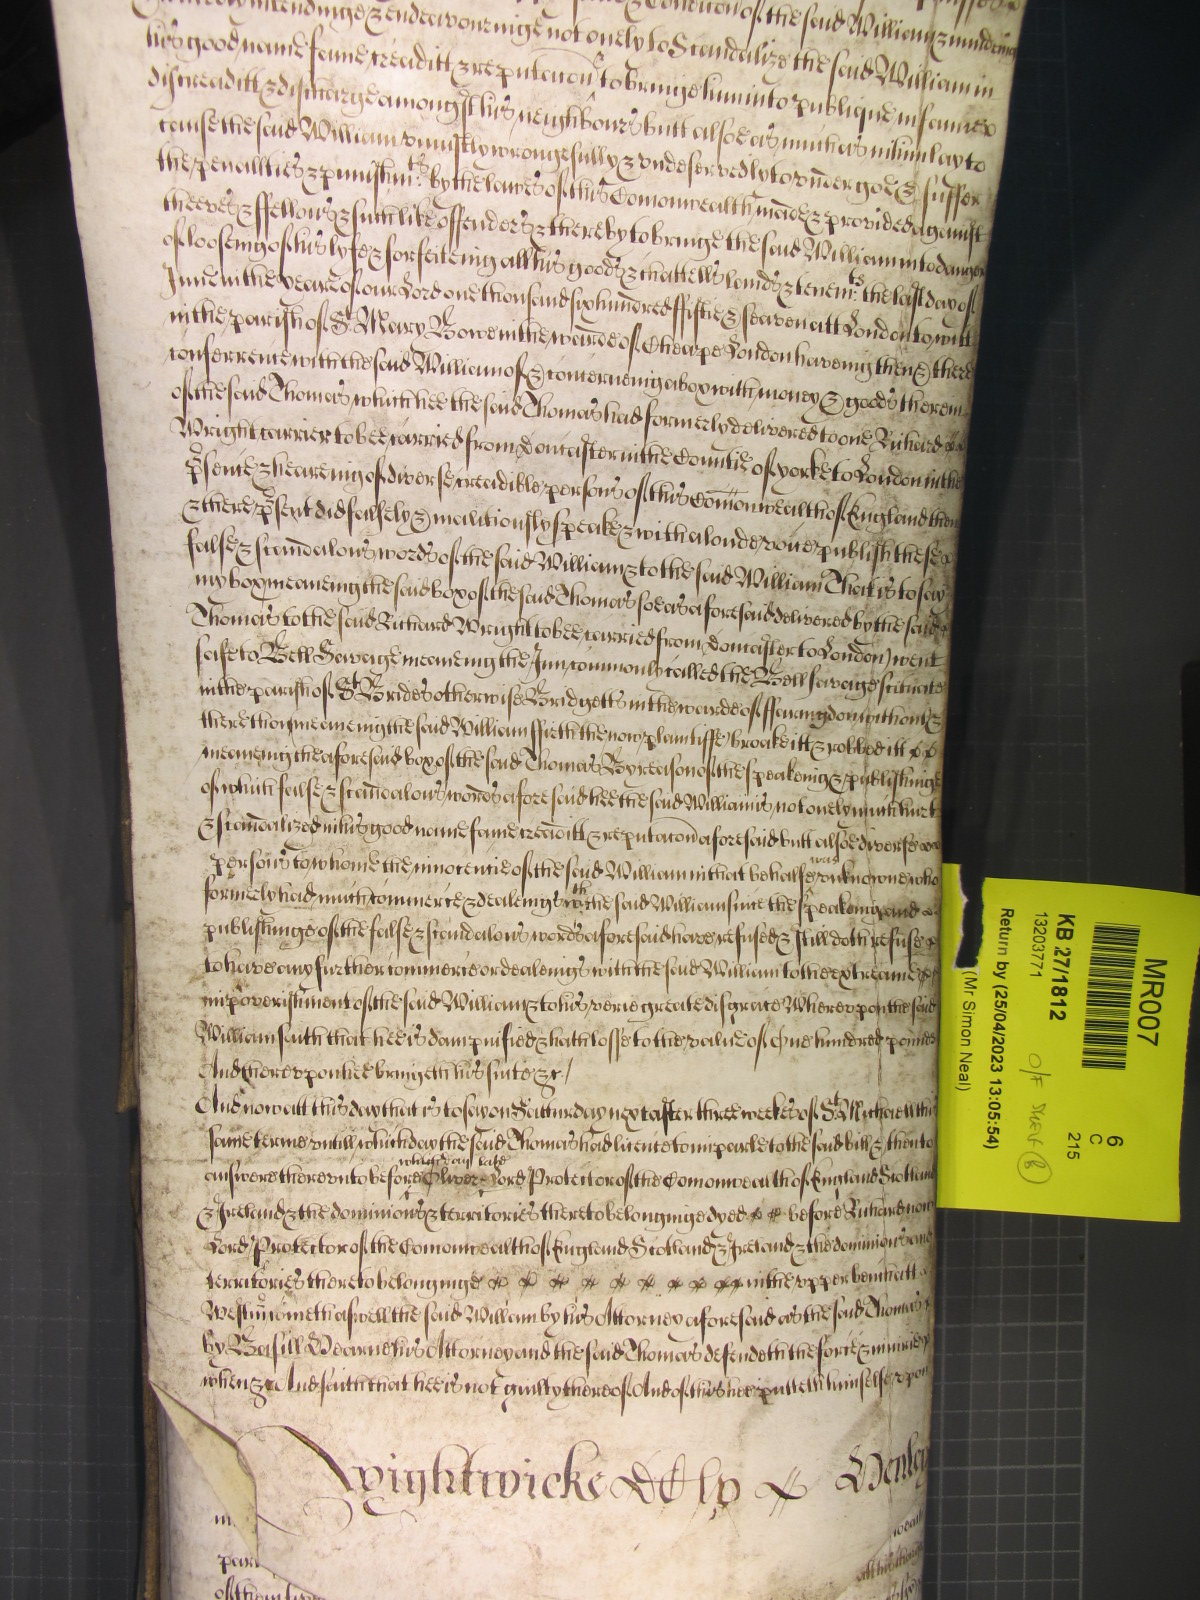 the said William & minding
his good name fame creaditt & reputacon to bringe him into publique infamie
discreaditt & discharge amongst his neighbours butt alsoe as much as in him lay to
cause the said William uniustly wrongefully & undeservedly to undergoe & suffer
the penallties & punishmts. by the lawes of this Comonwealth made & provided against
theeves & ffellons & such like offenders & thereby to bringe the said William into danger
of looseing of his lyfe & forfeiteing all his goods & chattells lands & tenemts. the last day of
June in the yeare of our Lord one thousand six hundred ffiftie & seaven att London to witt
in the parish of St. Mary Bowe in the warde of Cheape London haveing then & there
conference with the said William of & concerneing a box with money & goods therein
of the said Thomas which hee the said Thomas had formerly delivered to one Richard
Wright carrier to bee carried from Doncaster in the Countie of Yorke to London in the
psence & heareing of diverse creadible persons of this Comonwealth of England then
& there psent did falsely & malitiously speake & with a loude voice publish these
false & scandalous words of the said William & to the said William That is to say
my box meaneing the said box of the said Thomas soe as aforesaid delivered by the said
Thomas to the said Richard Wright to bee carried from Doncaster to London) went
safe to Bell Savage meaneing the Inn commonly called the Bell savage scituate
in the parish of St. Brides otherwise Bridgetts in the warde of ffarringdon without &
there thou meaneing the said William ffieth the now plaintiffe) broake itt & robbed itt
meaneing the aforesaid box of the said Thomas By reason of the speakeing & publishinge
of which false & scandalous words aforesaid hee the said William is not onely much hurt
& scandalized in his good name fame creaditt & reputacon aforesaid butt alsoe diverse
persons to whome the innocencie of the said William in that behalfe was unknowne who
formerly had much commerce & dealeings wth. the said William since the speakeing and
publishinge of the false & scandalous words aforesaid have refused & still doth refuse
to have any further commerce or dealeings with the said William to the extreame
impoverishment of the said William & to his verie greate disgrace Whereupon the said
William saith that hee is dampnified & hath losse to the value of One hundred pounds
And thereupon hee bringeth his suite &c /
And now att this day that is to say on Satturday next after three weekes of St. Michaell this
same terme untill which day the said Thomas had licence to imparle to the said bill & then to
answere thereunto before which day late Oliver Lord Protector of the Comonwealth of England Scotland
& Ireland & the dominions & territories thereto belonginge dyed before Richard now
Lord Protector of the Comonwealth of England Scotland & Ireland & the dominions and
territories thereto belonginge in the upper bench att
Westminster cometh aswell the said William by his Attorney aforesaid as the said Thomas
by Basill Hearne his Attorney and the said Thomas defendeth the force & iniurie
when &c And saith that hee is not guilty thereof And of this hee putteth himselfe upon
Wightwicke Henley
MR007
6
C
215
KB 27/1812
13203771
Return by (25/04/2023 13:05:54)
(Mr Simon Neal)